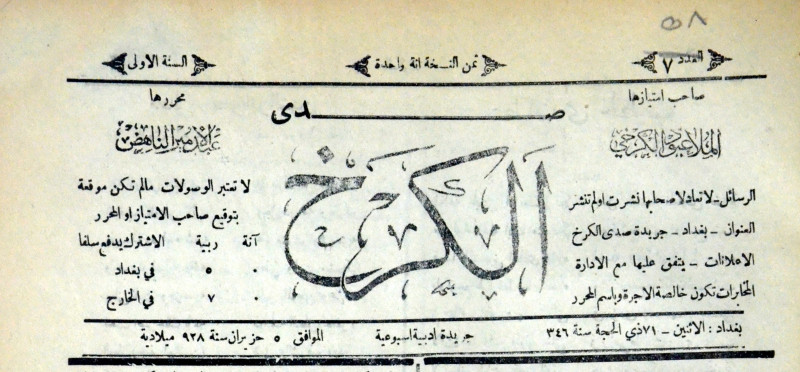 ٥٨
العدد ٧
ثمن النسخة انة واحدة
السنة الاولى
صاحب امتيازها
محررها
صدى
الملا عبود الكرخي
عبد الامير الناهض
الكرخ
الرسائل ـ لا تعاد لاصحابها نشرت او لم تنشر
العنوان ـ بغداد ـ جريدة صدى الكرخ
الاعلانات ـ يتفق عليها مع الادارة
المخابرات تكون خالصة الاجرة وباسم المحرر
لا تعتبر الوصولات مالم تكن موقعة
بتوقيع صاحب الامتياز او المحرر
آنة ربية الاشتراك يدفع سلفا
٠ ٥ في بغداد
٠ ٧ في الخارج
بغداد : الاثنين ـ ٧١ ذي الحجة سنة ٣٤٦
جريدة ادبية اسبوعية
الموافق ٥ حزيران سنة ٩٢٨ ميلادية